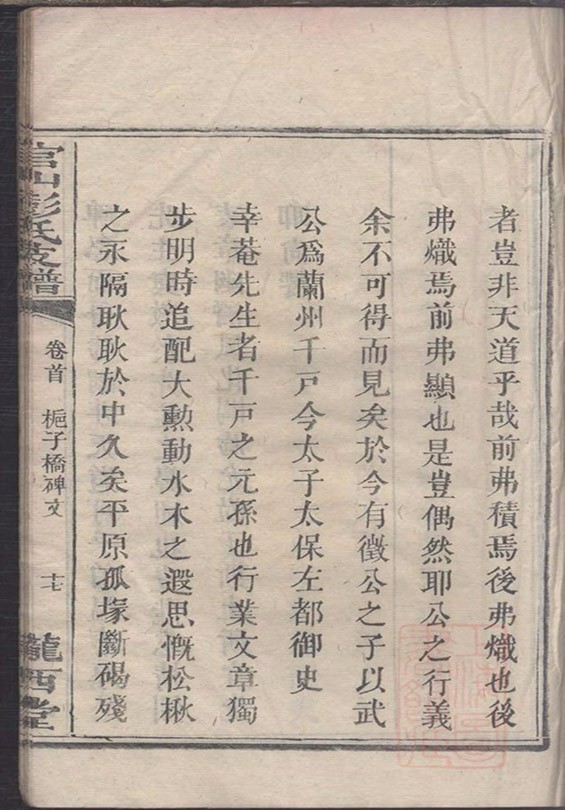 者豈非天道乎哉前弗積焉後弗熾也後
弗熾焉前弗顯也是豈偶然耶公之行義
余不可得而見矣於今有徵公之子以武
公爲蘭州千戶今太子太保左都御史
幸菴先生者千戶之元孫也行業文章獨
步明時追配大勲動水木之遐思慨松楸
之永隔耿耿於中久矣平原孤塚斷碣殘
官山彭氏支譜
卷首 梔子橋碑文
十七
隴西堂